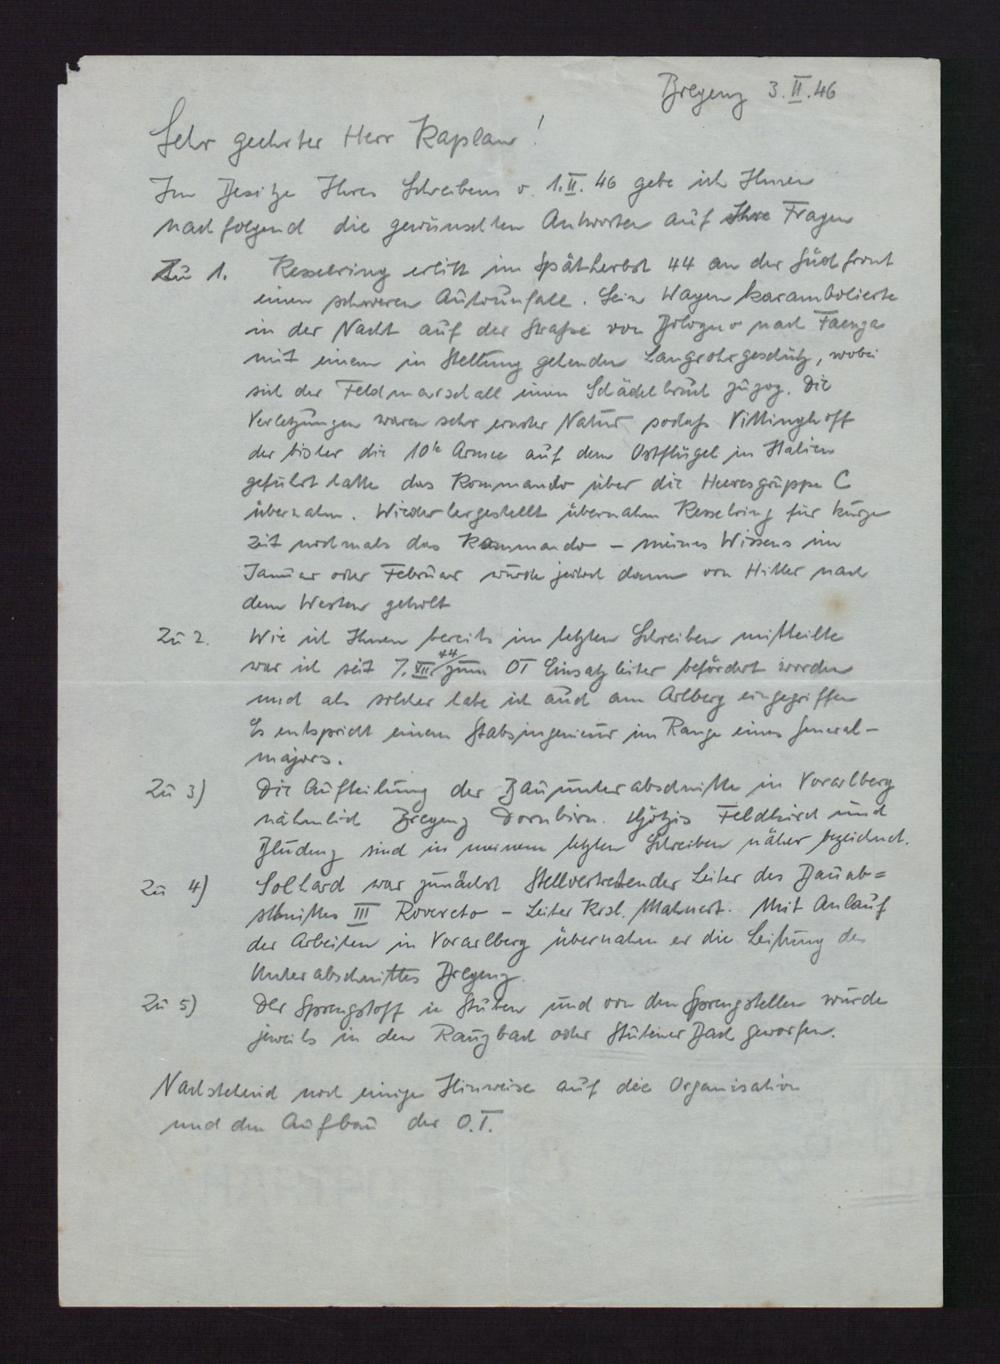 Bregenz 3.II.46
Sehr geehrter Herr Kaplan!
Im Besitze Ihres Schreibens v. 1.II.46 gebe ich Ihnen
nachfolgend die gewünschten Antworten auf Ihre Fragen
Zu 1. Kesselring erlitt im Spätherbst 44 an der Südfront
einen schweren Autounfall. Sein Wagen karambolierte
in der Nacht auf der Straße von Bologna nach Faenza
mit einem in Stellung gehenden Langrohrgeschütz, wobei
sich der Feldmarschall einen Schädelbruch zuzog. Die
Verletzungen waren sehr ernster Natur sodaß Vittinghoff
der bisher die 10te Armee auf dem Ostflügel in Italien
geführt hatte das Kommando über die Heeresgruppe C
übernahm. Wiederhergestellt übernahm Kesselring für kurze
Zeit nochmals das Kommando – meines Wissens im
Januar oder Februar wurde jedoch dann von Hitler nach
dem Westen geholt
Zu 2. Wie ich Ihnen bereits im letzten Schreiben mitteilte
war ich seit 7.VII.44 zum OT Einsatzleiter befördert worden
und als solcher habe ich auch am Arlberg eingegriffen
Es entspricht einem Stabsingenieur im Range eines General-
majors.
Zu 3) Die Aufteilung der Bauunterabschnitte in Vorarlberg
nähmlich Bregenz Dornbirn. Götzis Feldkirch und
Bludenz sind in meinem letzten Schreiben näher bezeichnet.
Zu 4) Solhard war zunächst Stellvertretender Leiter des Bauab=
schnittes III Rovereto – Leiter Mahnert. Mit Anlauf
der Arbeiten in Vorarlberg übernahm er die Leitung des
Unterabschnittes Bregenz.
Zu 5) Der Sprengstoff in Stuben und von den Sprengstellen wurde
jeweils in den Rauzbach oder Stubener Bach geworfen.
Nachstehend noch einige Hinweise auf die Organisation
und den Aufbau der O.T.